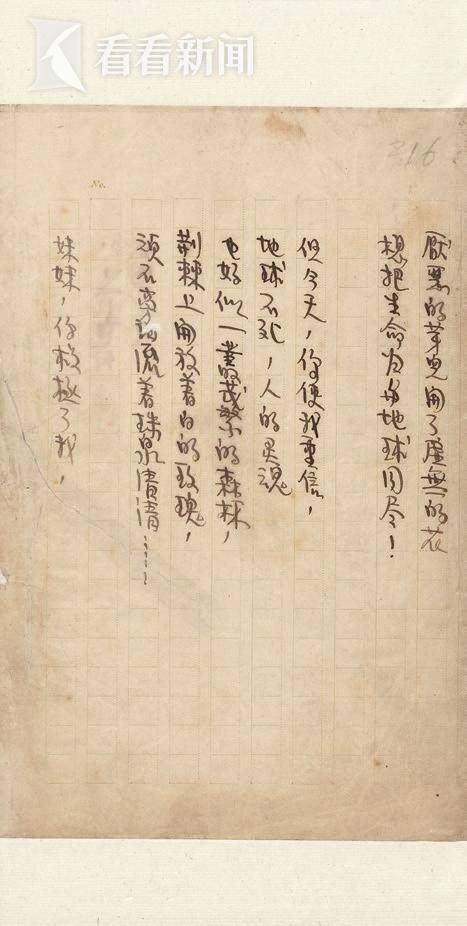 看看新闻
16
No.
厭惡的芽兒開了虛無的花
想把生命力与地球同尽！
但今天，你使我重信，
地球不死，人的灵魂
也好似一叢茂繁的森林，
荊棘上開放着白的玫瑰，
頑石流着珠泉清清……
妹妹，你了我，